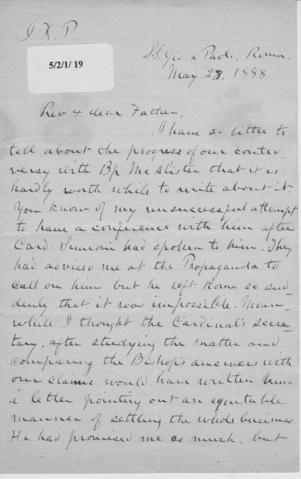 J. X. P.
5/2/1/19
SS. Gio. e Paolo, Rome.
May 28, 1888.
Rev & dear Father,
I have so little to
tell about the progress of our contro-
versy with Bp McAlister that it is
hardly worth while to write about it.
You know of my unsuccessful attempt
to have a conference with him after
Card. Simeoni had spoken to him. They
had advised me at the Propaganda to
call on him but he left Rome so sud-
denly that it was impossible. Mean-
while I thought the Cardinal's secre-
tary, after studying the matter and
comparing the Bishop's answers with
our claims, would have written him
a letter pointing out an equitable
manner of settling the whole business.
He had promised me as much, but